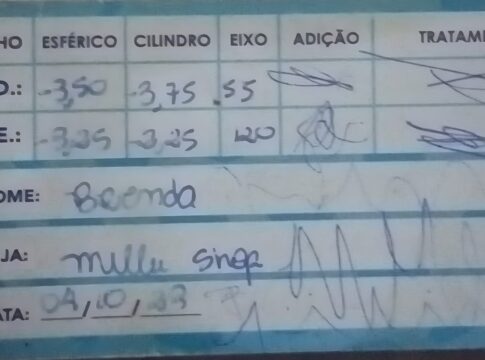 HO ESFÉRICO CILINDRO EIXO ADIÇÃO TRATAM
D.: -3,50 -3,75 .55
E.: -3,25 -3,25 120
OME: Brenda
JA: Millu Sinop
ATA: 04,10,23